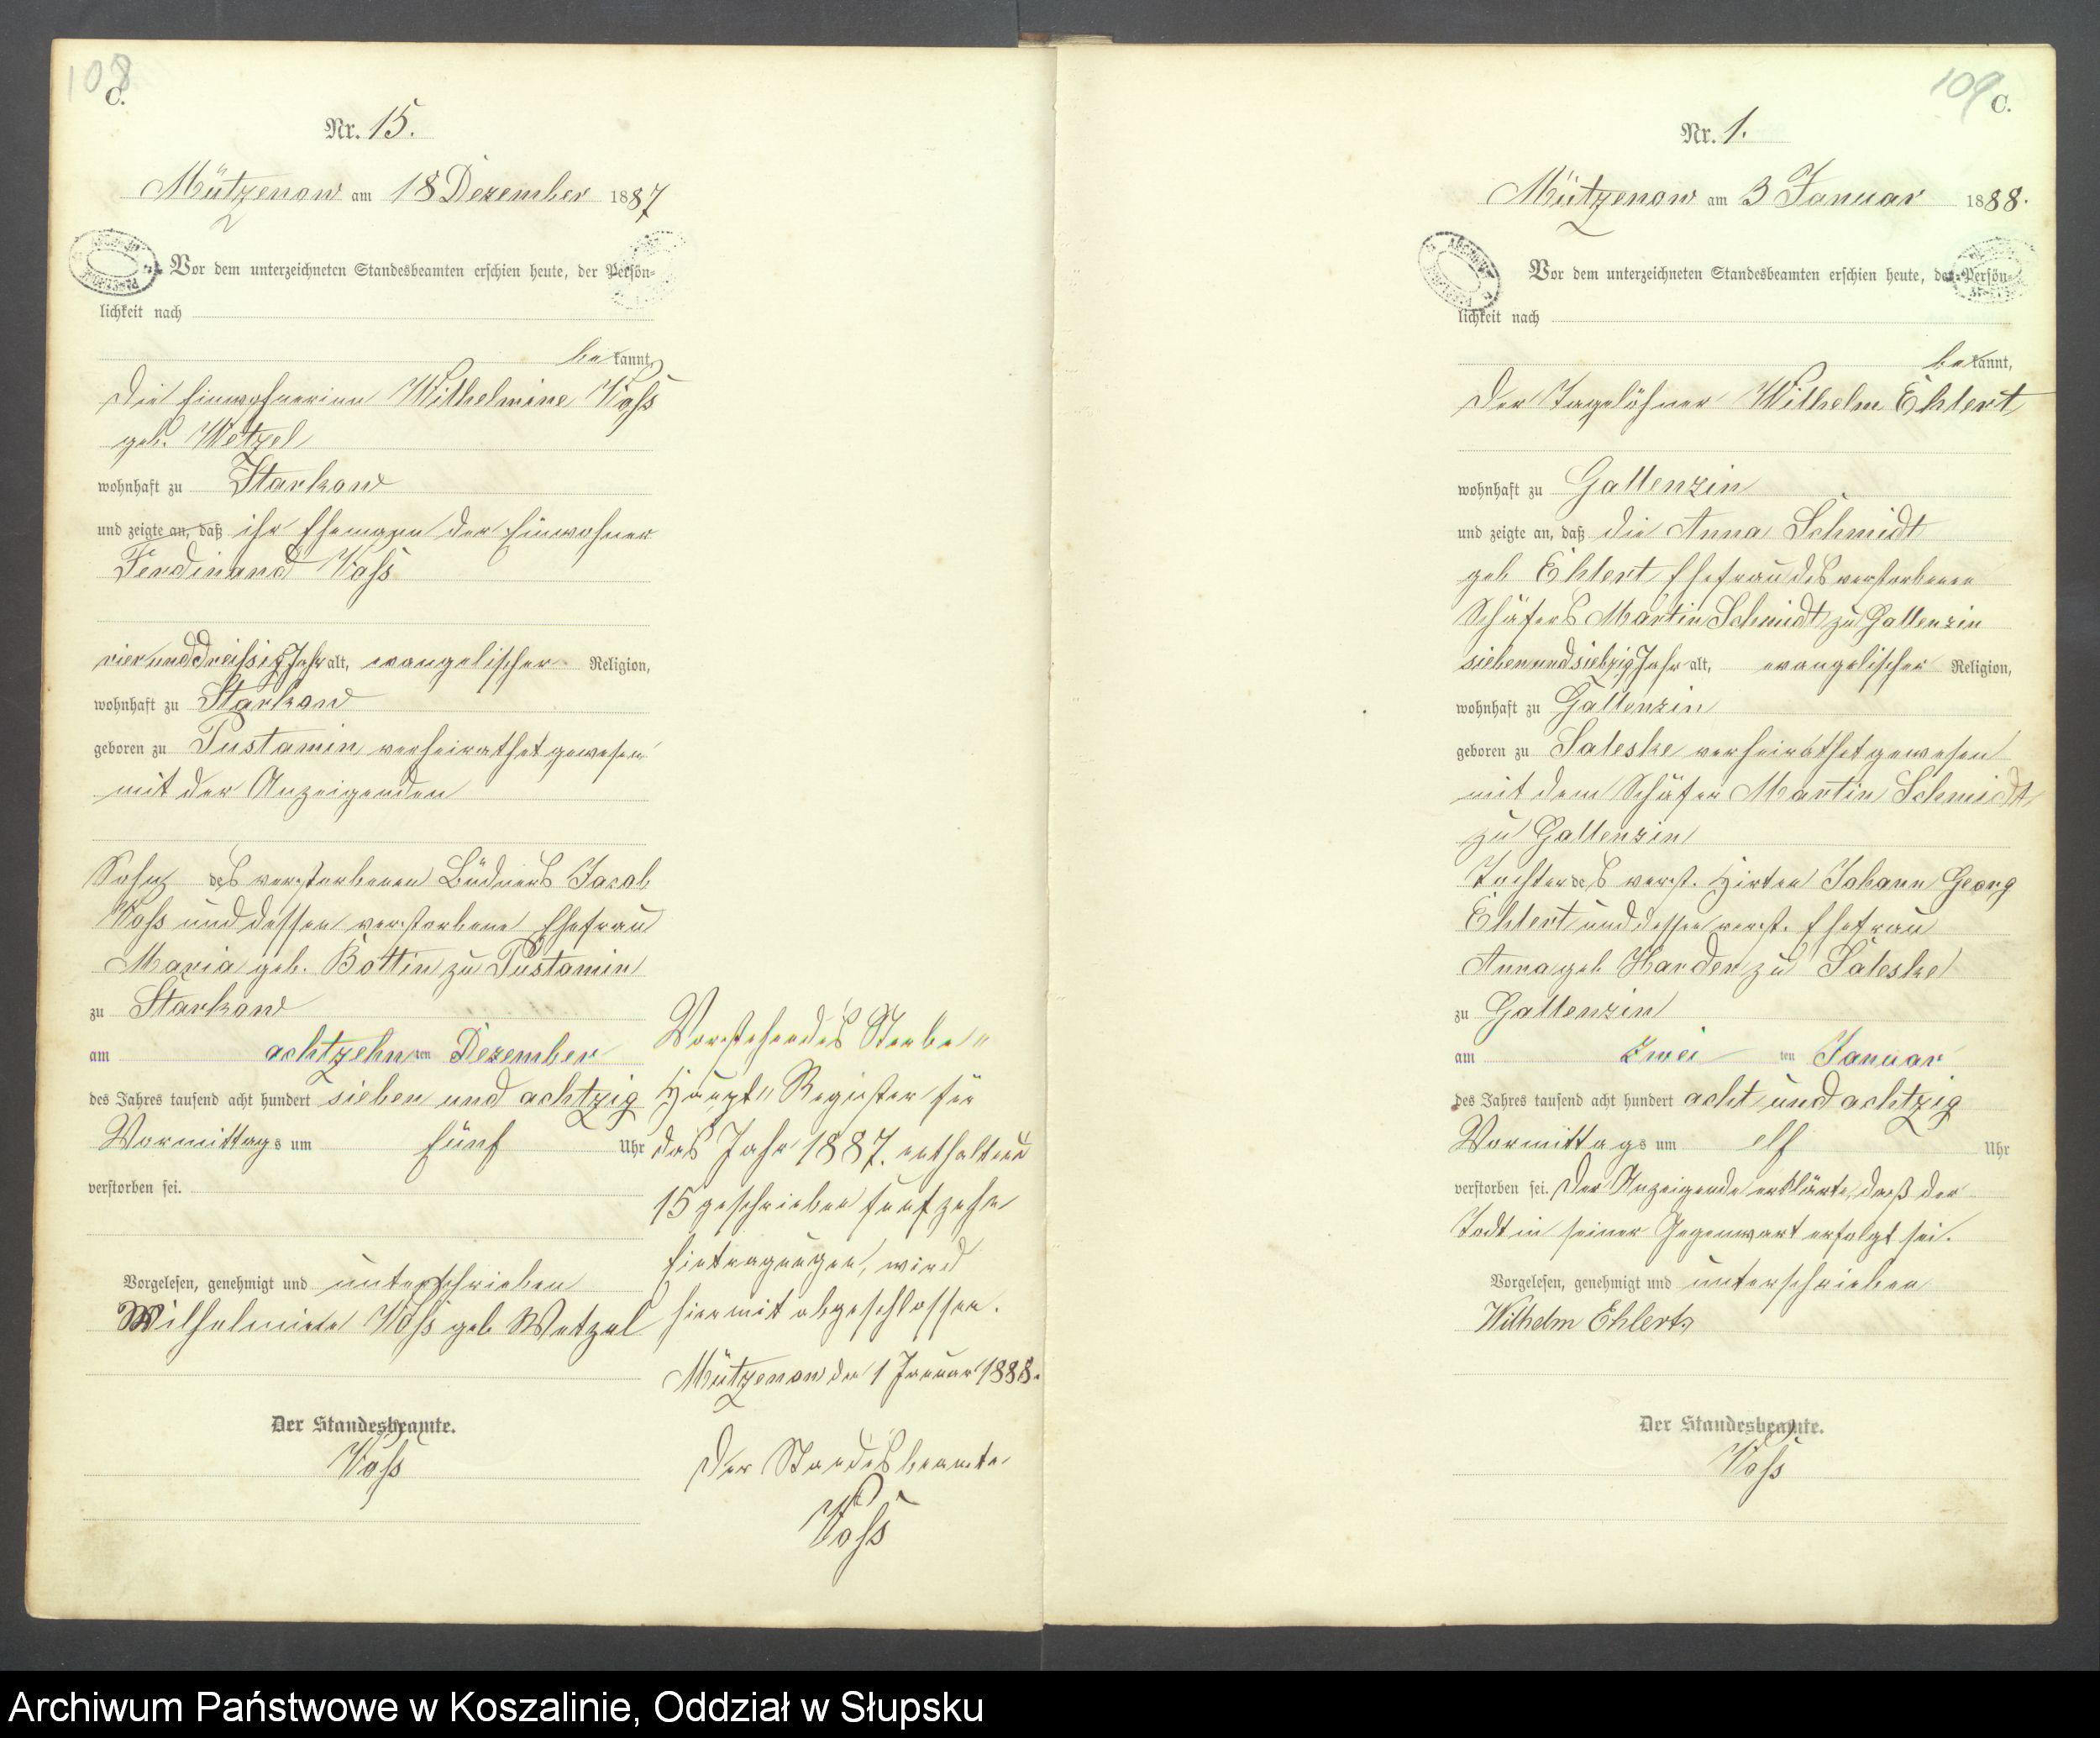 108
C.
Nr. 15.
Mützenow am 18 Dezember 1887
Vor dem unterzeichneten Standesbeamten erschien heute, der Persön-
lichkeit nach
bekannt,
die Einwohnerinn Wilhelmine Voss
geb. Wetzel
wohnhaft zu Starkow
und zeigte an, daß ihr Ehemann der Einwohner
Ferdinand Voss
vier und dreissig Jahr alt, evangelischer Religion,
wohnhaft zu Starkow
geboren zu Pustamin verheirathet gewesen
mit der Anzeigenden
Sohn des verstorbenen Büdners Jacob
Voss und dessen verstorbene Ehefrau
Maria geb. Bottin zu Pustamin
zu Starkow
am achtzehnten Dezember
des Jahres tausend acht hundert sieben und achtzig
Vormittags um fünf Uhr
verstorben sei.
Vorgelesen, genehmigt und unterschrieben
Wilhelmine Voss geb Wetzel
Der Standesbeamte.
Voss
Vorstehendes Sterbe"
Haupt" Register für
das Jahr 1887. enthaltend
15 geschrieben funfzehn
Eintragungen, wird
hiermit abgeschlossen.
Mützenow den 1 Januar 1888.
Der Standesbeamte
Voss
109
C.
Nr. 1.
Mützenow am 3 Januar 1888.
Vor dem unterzeichneten Standesbeamten erschien heute, der Persön-
lichkeit nach
bekannt,
der Tagelöhner Wilhelm Ehlert
wohnhaft zu Gallenzin
und zeigte an, daß die Anna Schmidt
geb Ehlert Ehefrau des verstorbenen
Schäfers Martin Schmidt zu Gallenzin
sieben und siebzig Jahr alt, evangelischer Religion,
wohnhaft zu Gallenzin
geboren zu Saleske verheirathet gewesen
mit dem Schäfer Martin Schmidt
zu Gallenzin
Tochter des verst. Hirten Johann Georg
Ehlert und dessen verst. Ehefrau
Anna geb Harder zu Saleske
zu Gallenzin
am zwei ten Januar
des Jahres tausend acht hundert acht und achtzig
Vormittags um elf Uhr
verstorben sei. Der Anzeigende erklärte, daß der
Todt in seiner Gegenwart erfolgt sei.
Vorgelesen, genehmigt und unterschrieben
Wilhelm Ehlert
Der Standesbeamte.
Voss
Archiwum Państwowe w Koszalinie, Oddział w Słupsku